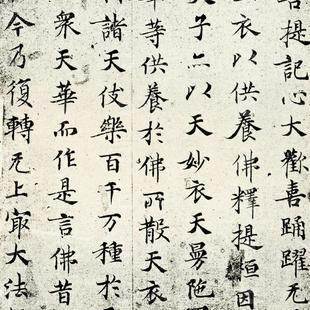 菩提記心大歡喜踊躍无
衣以供養佛釋提桓因
天子亦以天妙衣天曼陁
華等供養於佛所散天衣
諸天伎樂百千万種於
衆天華而作是言佛昔
今乃復轉无上㝡大法